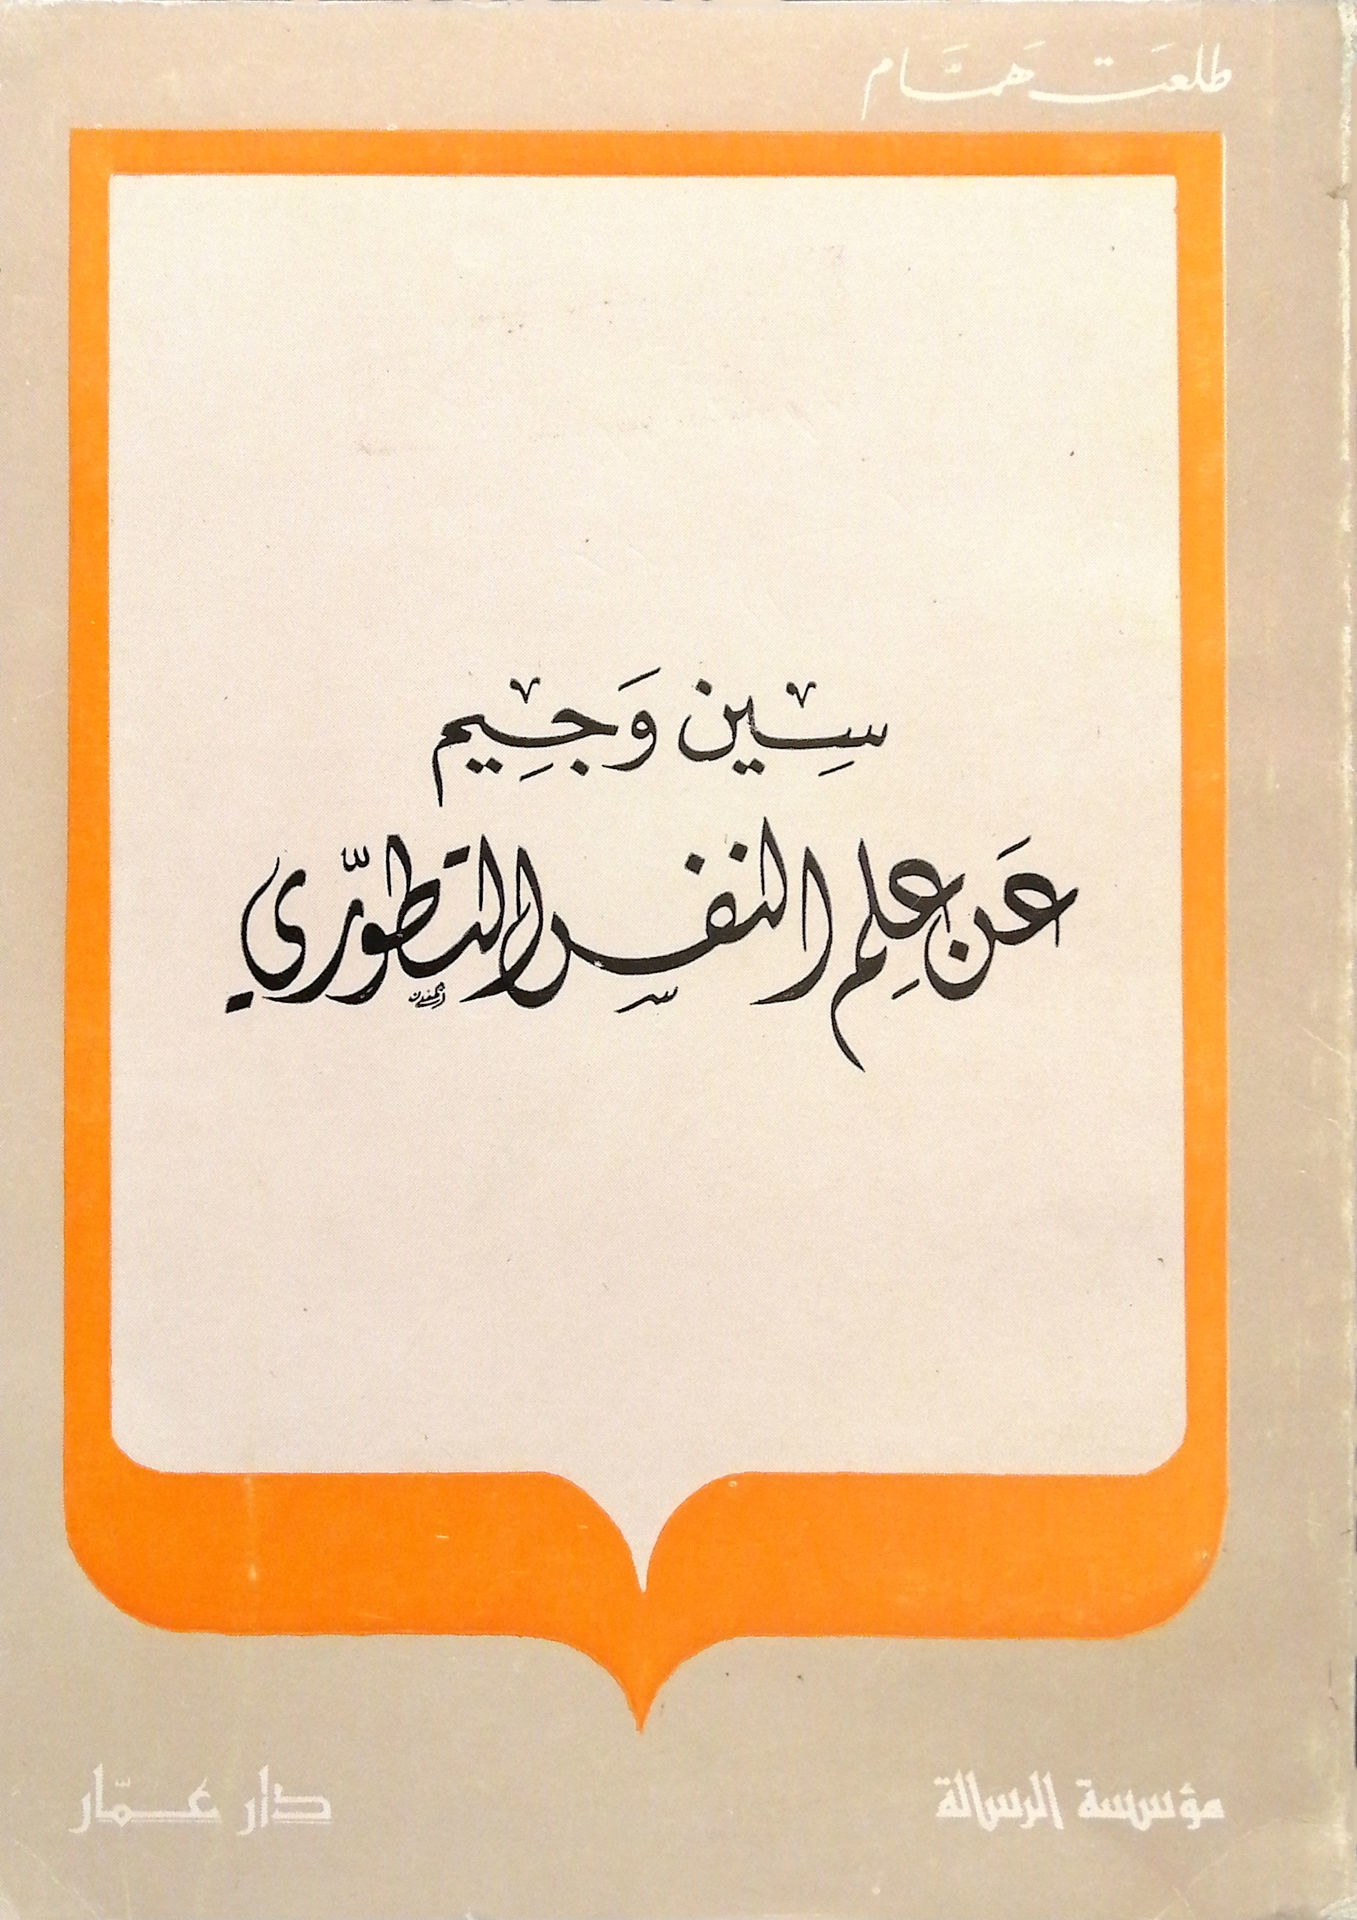 طلعَت همَّام
سِين وَجِيم
عَن عِلم النفسِ التطوّري
مؤسسة الرسالة
دار عمّار